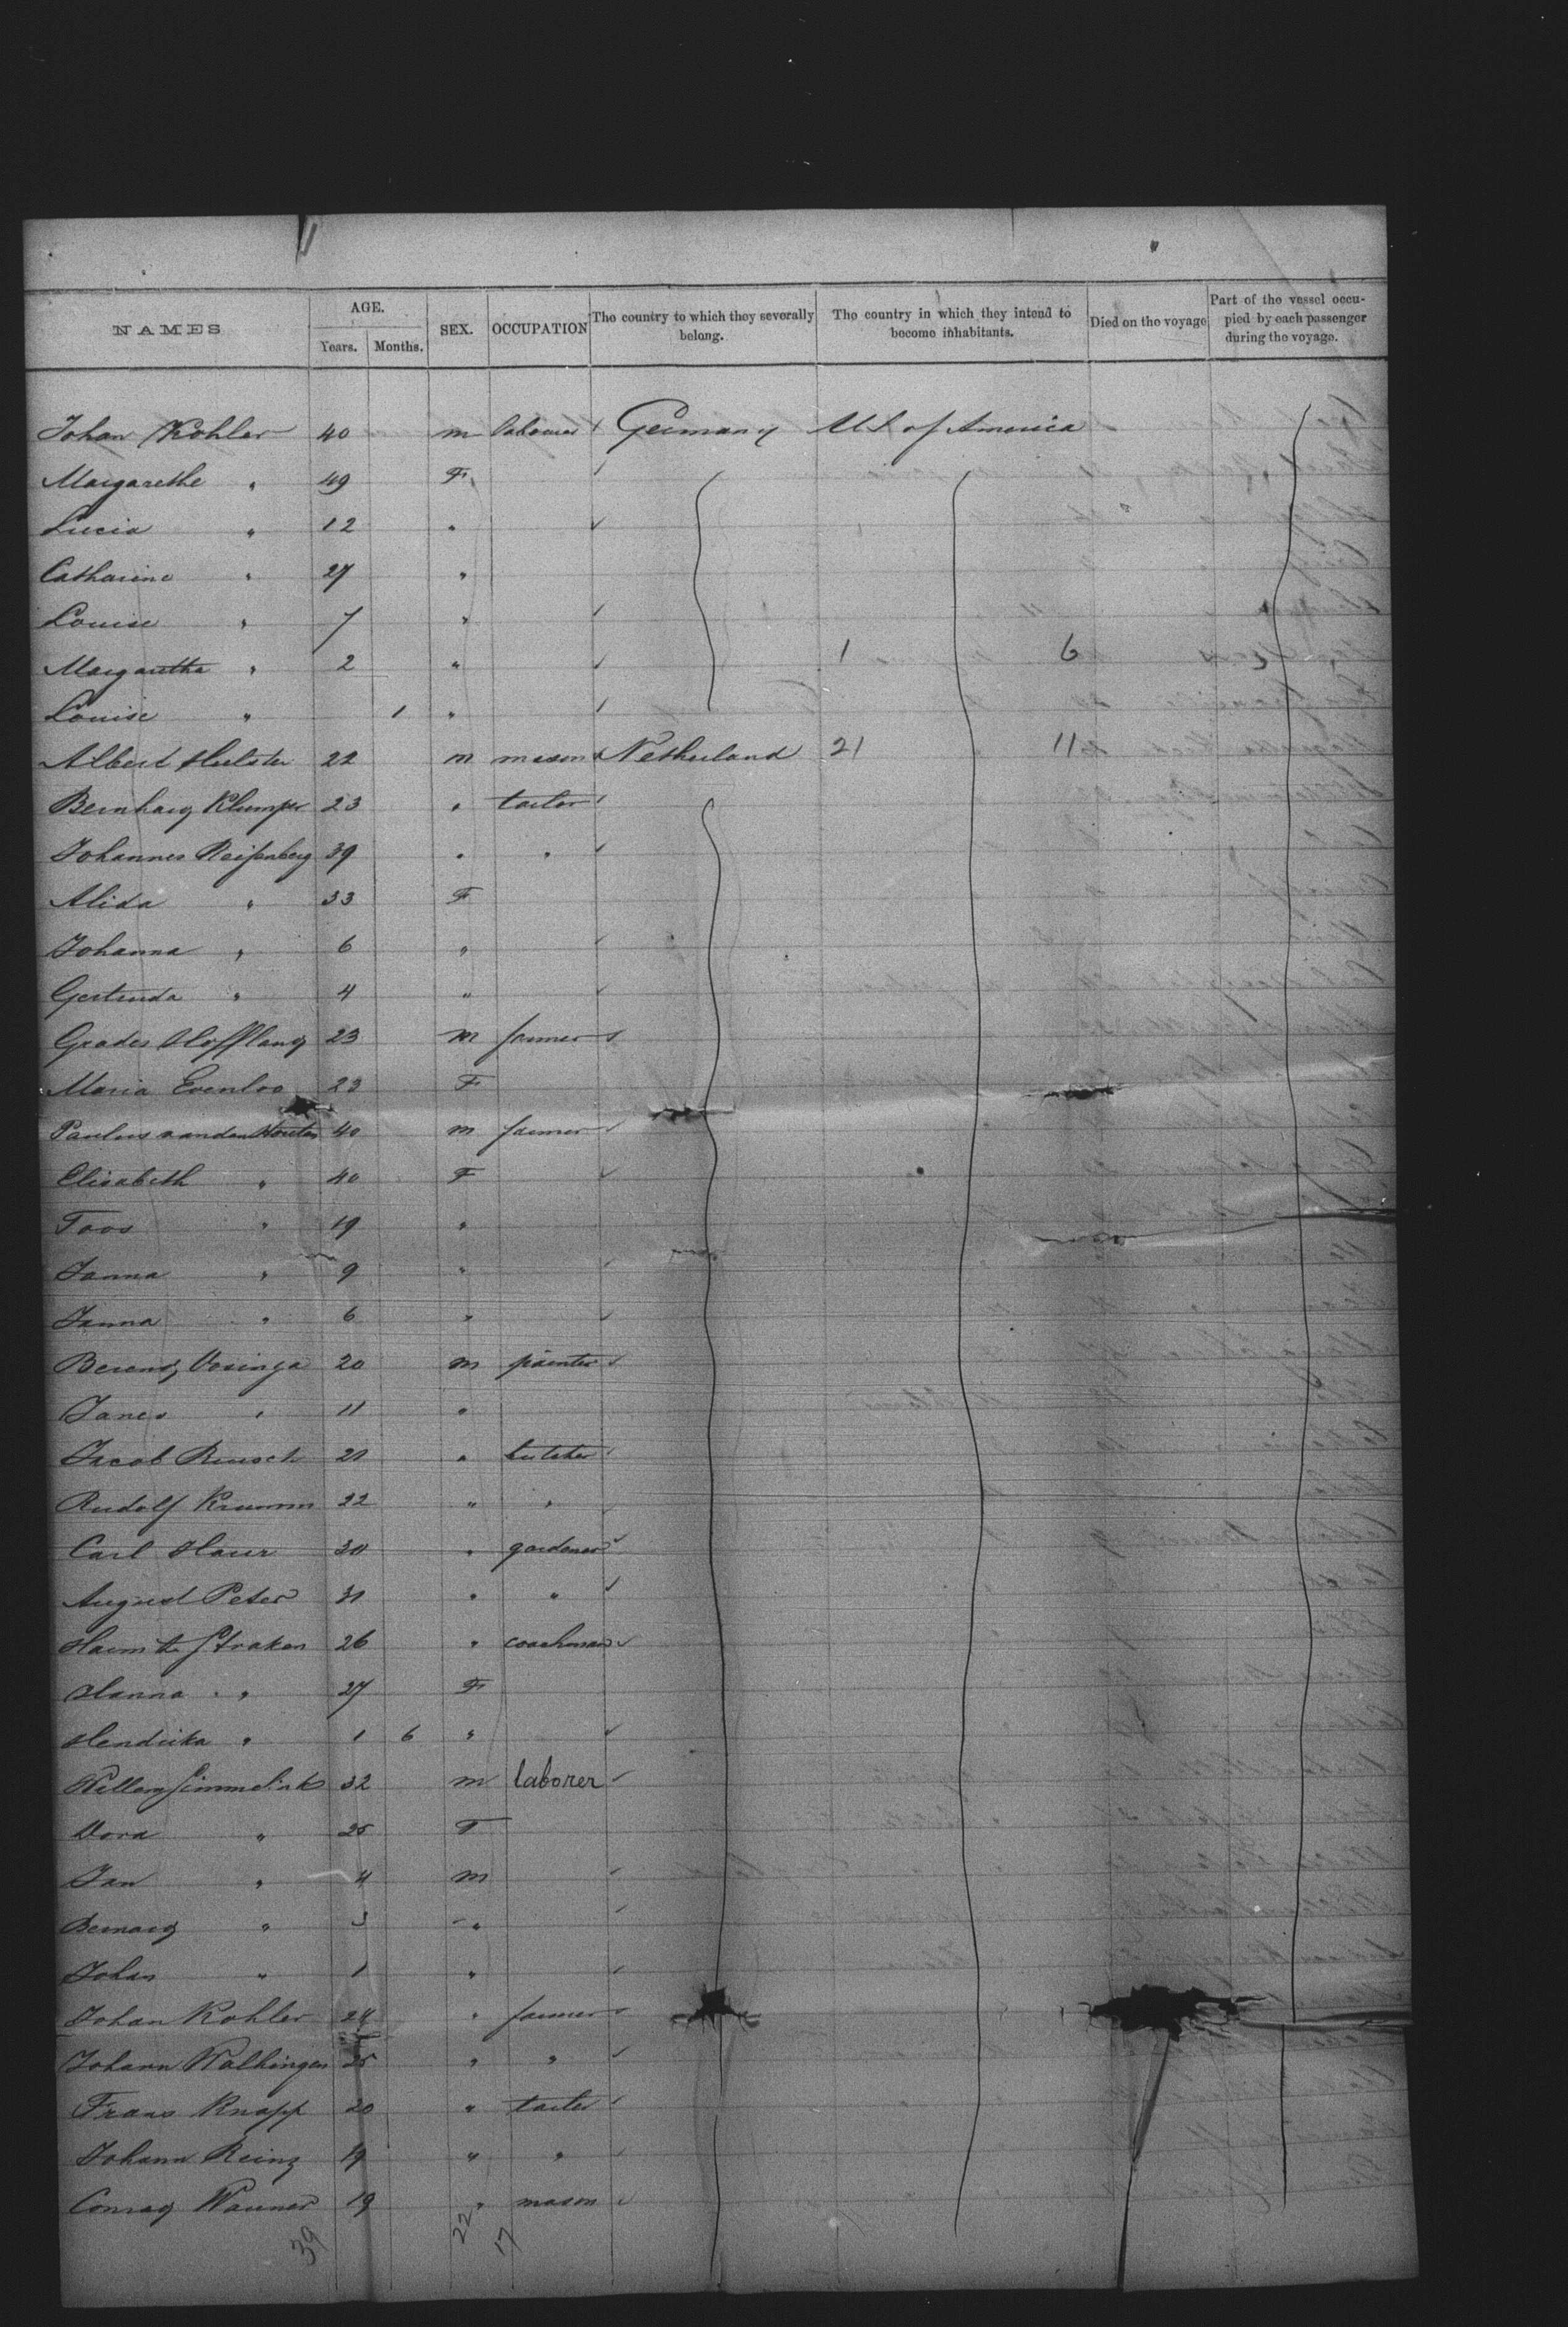 NAMES AGE. Years. Months. SEX. OCCUPATION The country to which they severally belong. The country in which they intend to become inhabitants. Died on the voyage Part of the vessel occupied by each passenger during the voyage.
Johan Kohler 40 m labourer Germany U S of America
Margarethe " 49 F
Lucia " 12 "
Catharine " 27 "
Louise " 7 "
Margaretha " 2 " 1 6
Louise " 1 "
Albert Hulster 22 m mason Netherland 21 11
Bernhard Klumper 23 " tailor
Johannes Reisenberg 39 " "
Alida " 33 F
Johanna " 6 "
Gertruda " 4 "
Grades Hoffland 23 m farmer
Maria Evenloo 23 F
Paulus van den Houten 40 m farmer
Elisabeth " 40 F
Toos " 19 "
Janna " 9 "
Janna " 6 "
Berend Vosinga 20 m painter
Janes " 11 "
Jacob Reusch 21 " butcher
Rudolf Krumm 22 " "
Carl Hauer 30 " gardener
August Peter 31 " "
Harm te Straken 26 " coachman
Hanna " 27 F
Hendrika " 1 6 "
Willem Simmelink 32 m laborer
Dora " 25 F
Jan " 4 m
Bernard " 3 "
Johan " 1 "
Johan Kohler 24 " farmer
Johann Walhinger 25 " "
Frans Knapp 20 " tailor
Johann Reinz 19 " "
Conrad Wanner 19 " mason
39 22 17